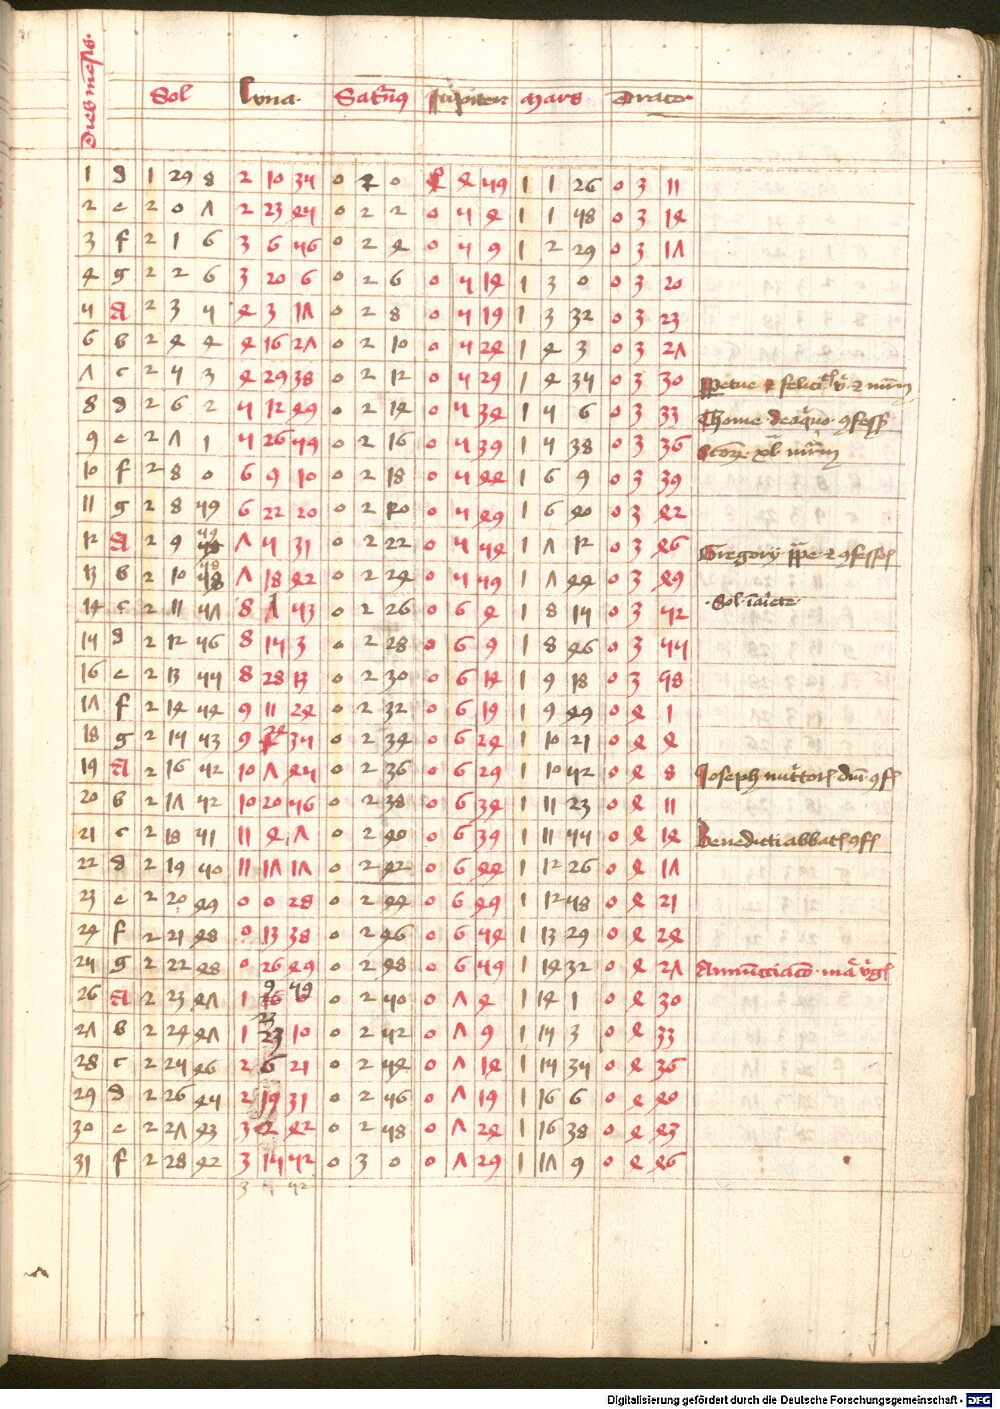 Dies mensis
Sol Luna Saturnus Jupiter Mars Draco
1 d 1 29 8 2 10 35 0 2 0 0 4 59 1 1 26 0 3 11
2 e 2 0 7 2 23 45 0 2 2 0 5 4 1 1 58 0 3 14
3 f 2 1 6 3 6 56 0 2 4 0 5 9 1 2 29 0 3 17
4 g 2 2 6 3 20 6 0 2 6 0 5 14 1 3 0 0 3 20
5 A 2 3 5 4 3 17 0 2 8 0 5 19 1 3 32 0 3 23
6 b 2 4 4 4 16 27 0 2 10 0 5 24 1 4 3 0 3 27
7 c 2 5 3 4 29 38 0 2 12 0 5 29 1 4 35 0 3 30 Perpetue et felici
8 d 2 6 2 5 12 49 0 2 14 0 5 34 1 5 6 0 3 33 Thome de aquino 9fess
9 e 2 7 1 5 26 59 0 2 16 0 5 39 1 5 38 0 3 36 xl
10 f 2 8 0 6 9 10 0 2 18 0 5 44 1 6 9 0 3 39
11 g 2 8 59 6 22 20 0 2 20 0 5 49 1 6 40 0 3 42
12 A 2 9 59 7 5 31 0 2 22 0 5 54 1 7 12 0 3 46 Gregory ppe et 9fess
13 b 2 10 58 7 18 42 0 2 24 0 5 59 1 7 44 0 3 49
14 c 2 11 57 8 1 53 0 2 26 0 6 4 1 8 15 0 3 52 Sol
15 d 2 12 56 8 15 3 0 2 28 0 6 9 1 8 46 0 3 55
16 e 2 13 55 8 28 13 0 2 30 0 6 14 1 9 18 0 3 58
17 f 2 14 54 9 11 24 0 2 32 0 6 19 1 9 49 0 4 1
18 g 2 15 53 9 24 35 0 2 34 0 6 24 1 10 21 0 4 4
19 A 2 16 52 10 7 45 0 2 36 0 6 29 1 10 52 0 4 8 Joseph nutrtoris dni 9f
20 b 2 17 52 10 20 56 0 2 38 0 6 34 1 11 23 0 4 11
21 c 2 18 51 11 4 7 0 2 40 0 6 39 1 11 55 0 4 14 Benedicti abbatis 9f
22 d 2 19 50 11 17 17 0 2 42 0 6 44 1 12 26 0 4 17
23 e 2 20 49 0 0 28 0 2 44 0 6 49 1 12 58 0 4 21
24 f 2 21 48 0 13 38 0 2 46 0 6 54 1 13 29 0 4 24
25 g 2 22 48 0 26 49 0 2 48 0 6 59 1 14 32 0 4 27 Annuncciaco mar vgis
26 A 2 23 47 1 9 59 0 2 50 0 7 4 1 14 1 0 4 30
27 b 2 24 47 1 23 10 0 2 52 0 7 9 1 15 3 0 4 33
28 c 2 25 46 2 6 21 0 2 54 0 7 14 1 15 35 0 4 36
29 d 2 26 45 2 19 31 0 2 56 0 7 19 1 16 6 0 4 40
30 e 2 27 43 3 2 42 0 2 58 0 7 24 1 16 38 0 4 43
31 f 2 28 42 3 15 52 0 3 0 0 7 29 1 17 9 0 4 46
Digitalisierung gefördert durch die Deutsche Forschungsgemeinschaft - DFG